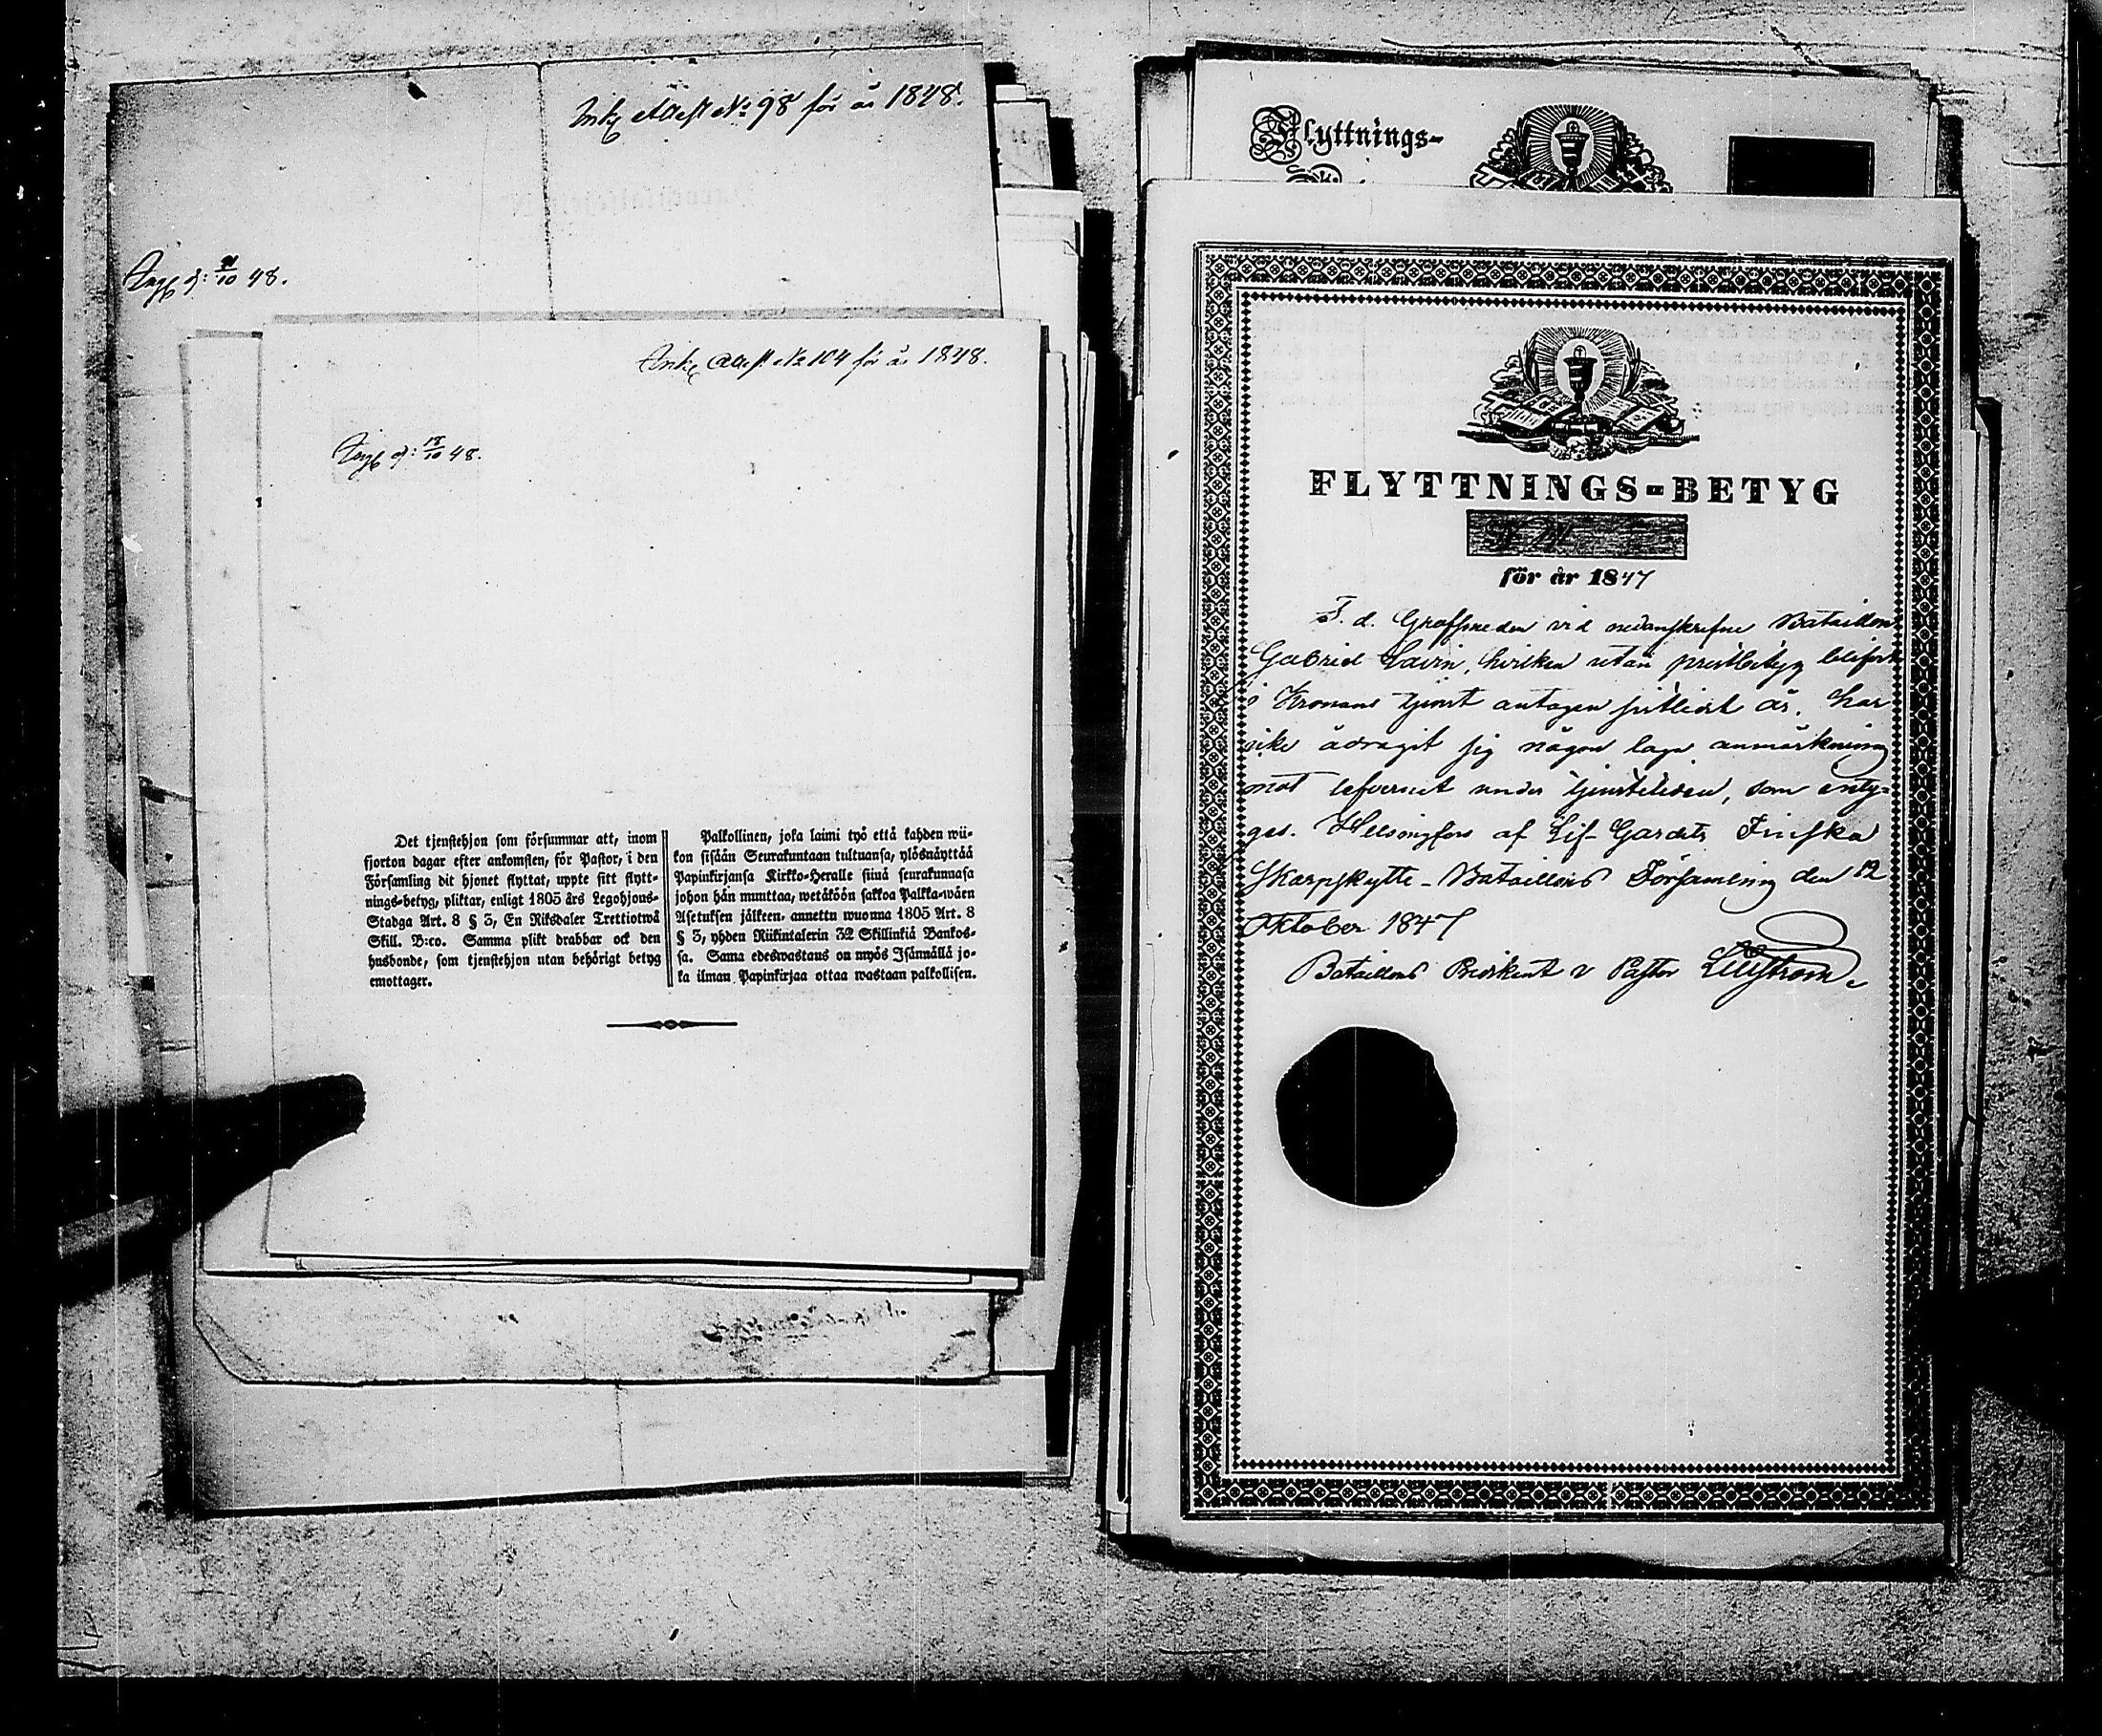 Ink. Attest No 98 för år 1848.
10 48.
Ink. Attest No 104 för år 1848.
18/10 48.
Det tjenstehjon som försummar att, inom
fjorton dagar efter ankomsten, för Pastor, i den
Församling dit hjonet flyttat, uppte sitt flytt-
nings-betyg, pliktar, enligt 1805 års Legohjons-
Stadga Art. 8 § 3, En Riksdaler Trettiotwå
Skill. B:co. Samma plikt drabbar ock den
husbonde, som tjenstehjon utan behörigt betyg
emottager.
Palkollinen, joka laimi lyö että kahden wii-
kon sisään Seurakuntaan tultuansa, ylösnäyttää
Papinkirjansa Kirkko-Heralle siinä seurakunnasa
johon hän muuttaa, wetäköön sakkoa Palkka-wäen
Asetuksen jälkeen, annettu wuonna 1805 Art. 8
§ 3, yhden Riikintalerin 32 Skillinkiä Bankos-
sa. Sama edeswastaus on myös Isännällä jo-
ka ilman Papinkirjaa ottaa wastaan palkollisen.
Flyttnings-
FLYTTNINGS-BETYG
för år 1847
F. d. Grofsmeden vid nedanskrefne Bataillon
Gabriel Lavin, hvilken utan prestbetyg blifvit
i Kronans tjenst antagen sistlidit år, har
icke ådragit sig någon laga anmärkning
mot lefvernet under tjenstetiden, som intyg-
gas. Helsingfors af Lif-Gardets Finska
Skarpskytte-Bataillons Församling den 12
Oktober 1847
Bataillons Predikant v Pastor Lillström.